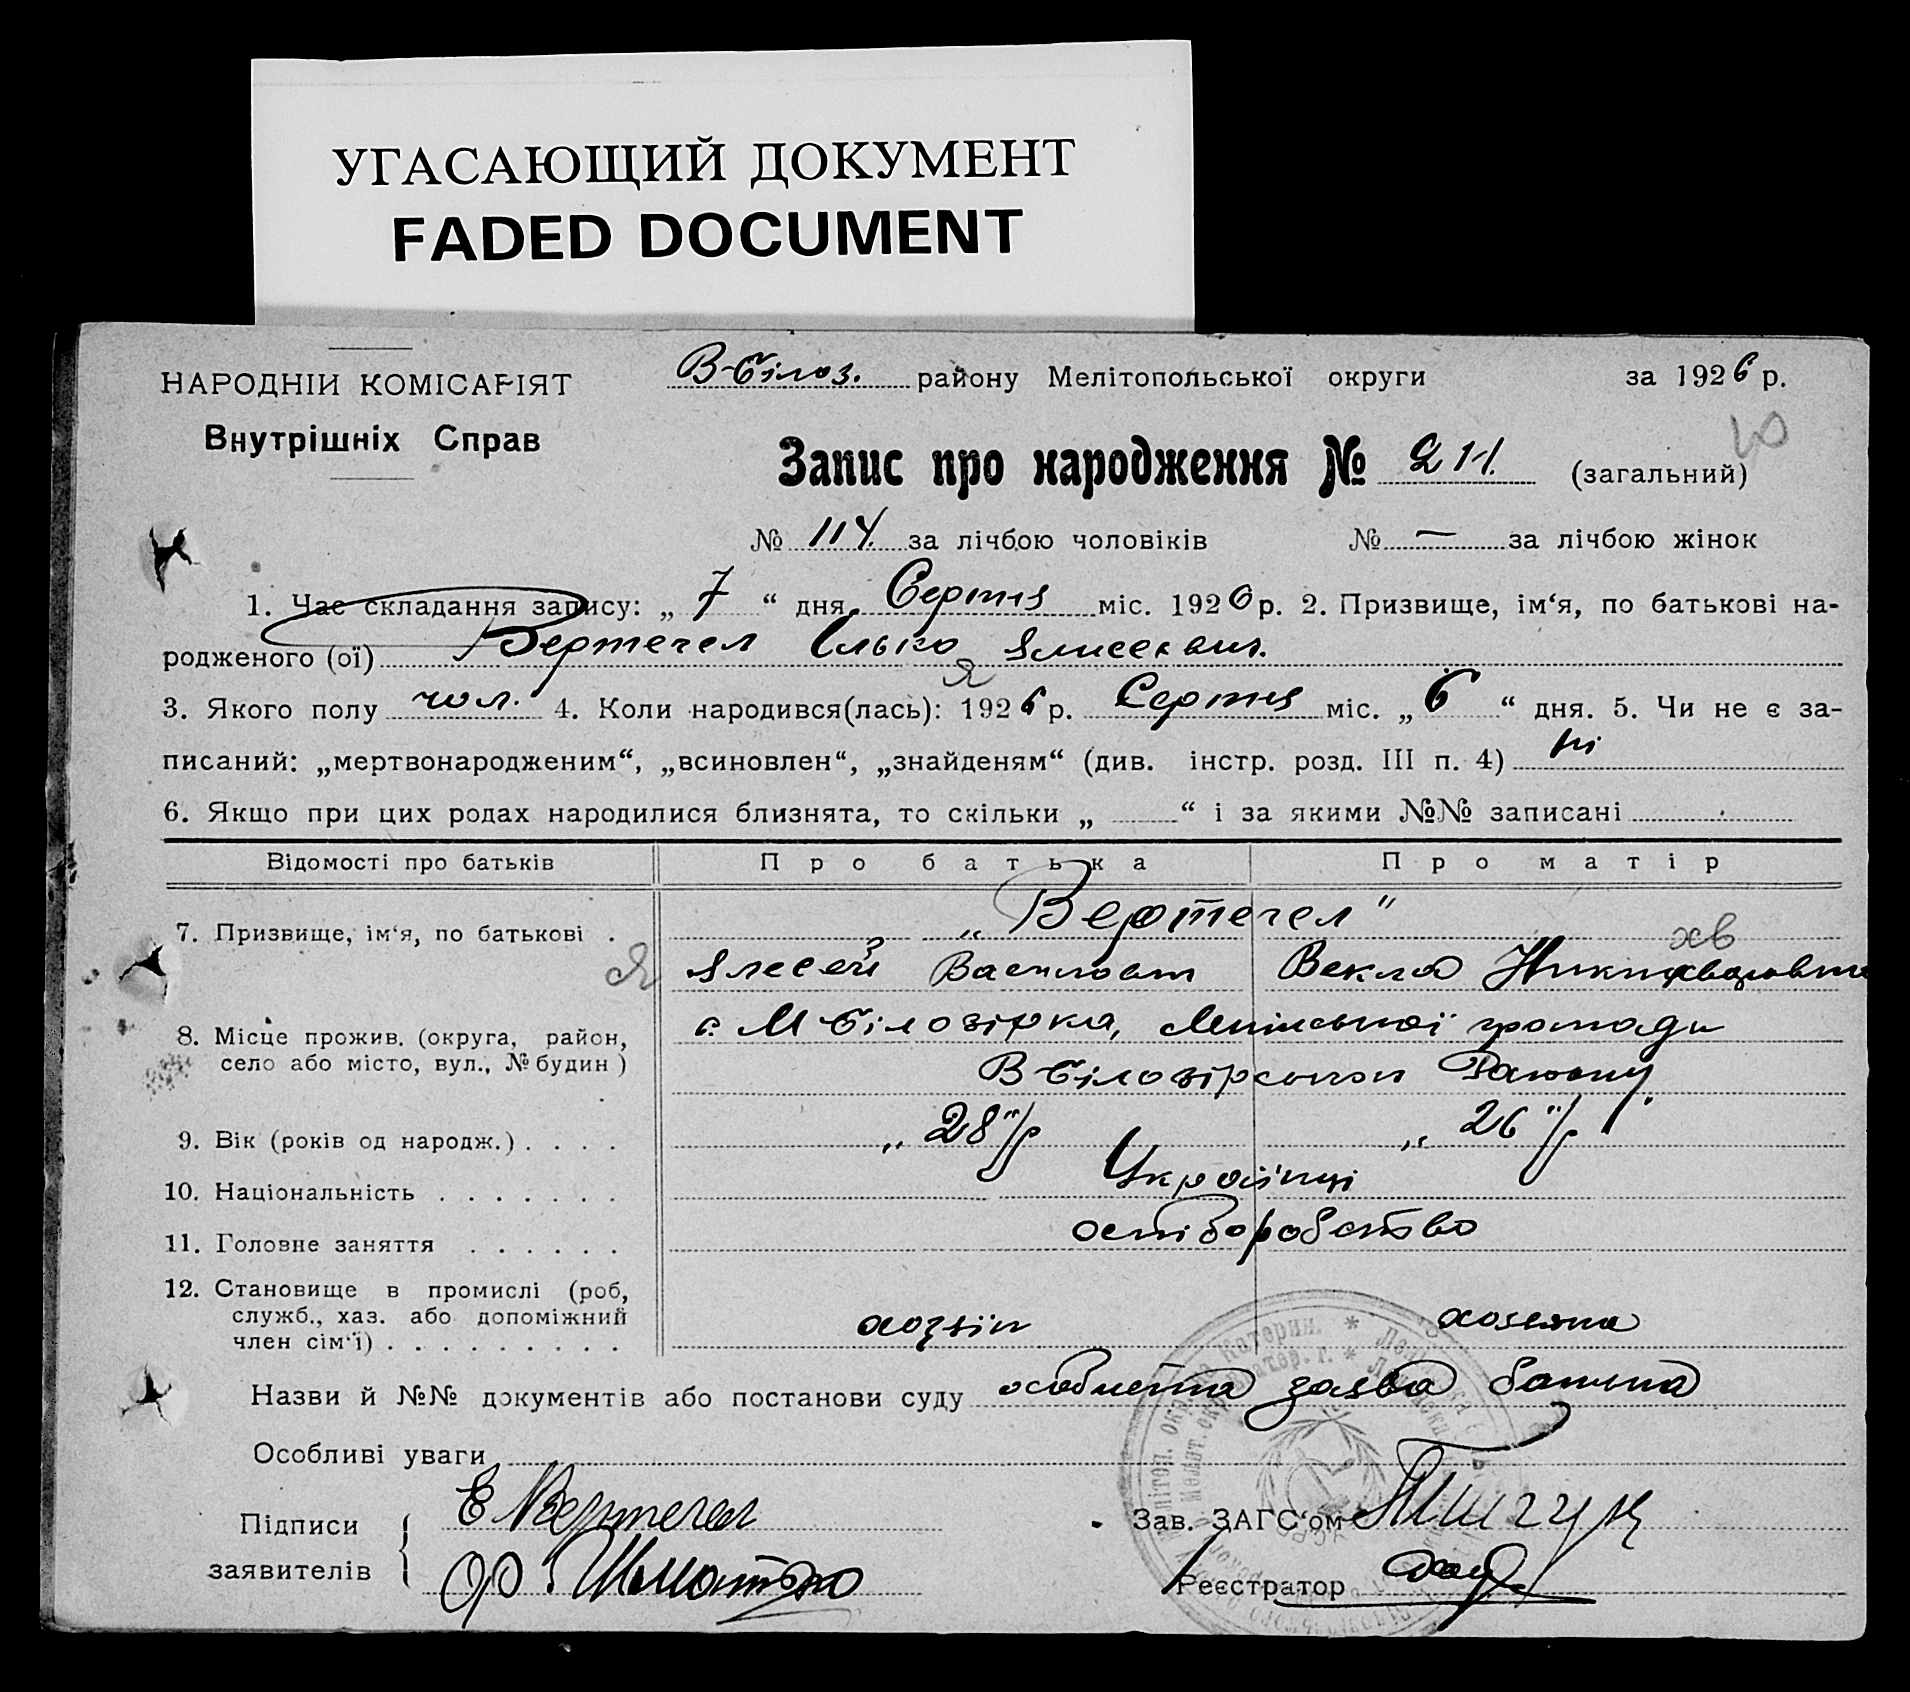 УГАСАЮЩИЙ ДОКУМЕНТ
FADED DOCUMENT
НАРОДНІЙ КОМІСАРІЯТ
Внутрішніх Справ
В-Білоз. району Мелітопольської округи за 1926 р.
Запис про народження № 211. (загальний)
№ 114. за лічбою чоловіків № — за лічбою жінок
1. Час складання запису: „ 7 “ дня Серпня міс. 1926 р. 2. Призвище, ім‘я, по батькові на-
родженого (ої) Вертегел Ілько
3. Якого полу чол. 4. Коли народився(лась): 1926 р. Серпня міс. „ 6 “ дня. 5. Чи не є за-
писаний: „мертвонародженим“, „всиновлен“, „знайденям“ (див. інстр. розд. III п. 4) ні
6. Якщо при цих родах народилися близнята, то скільки „ “ і за якими №№ записані
Відомості про батьків Про батька Про матір
7. Призвище, ім‘я, по батькові . „Вертегел“
Елесей Васильов. Векла
8. Місце прожив. (округа, район, село або місто, вул., № будин) с. М Білозірка, громади
В Білозірського Району
9. Вік (років од народж.) . . . . „28“/р „26“/р
10. Національність . . . . . . . Українці
11. Головне заняття . . . . . .
12. Становище в промислі (роб, служб., хаз. або допоміжний член сім‘ї) . . . . . . . . . хозяїн хозяйка
Назви й №№ документів або постанови суду особиста заява батька
Особливі уваги
Підписи заявителів Е Вертегел
Зав. ЗАГС‘ом
Реєстратор